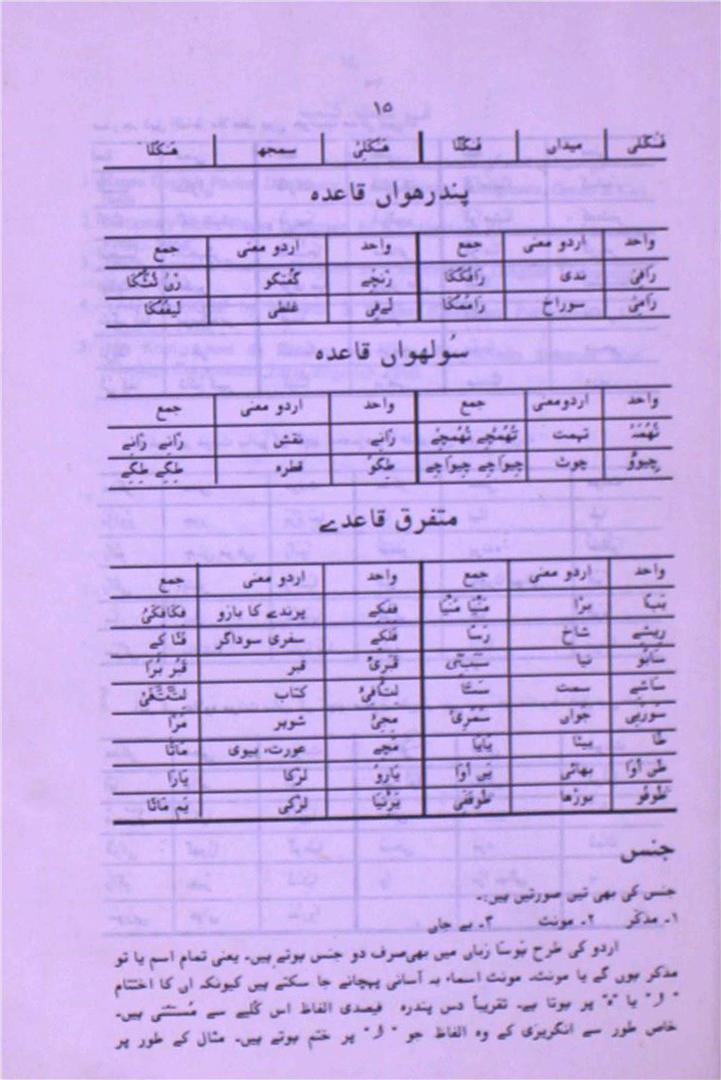 ١٥
فَنْكَلِی میداں فَنْكَلَا هَنْكَلِیْ سمجھ هَنْكَلَا
پندرھواں قاعدہ
واحد اردو معنی جمع واحد اردو معنی جمع
رَافِیْ ندی رَافُكَكَا زَنْچے گفتگو
رَامِیْ سوراخ رَامُمُكَا لَےفِی غلطی لَیفُفُكَا
سُولھواں قاعدہ
واحد اردومعنی جمع واحد اردو معنی جمع
تُهُمَهْ تہمت تُهُمْچے تُهُمْچے زَانے نقش زَانے زَانے
چوٹ چِیوَاچے چِیوَاچے طِگو قطرہ طِگے طِگے
متفرق قاعدے
واحد اردو معنی جمع واحد اردو معنی جمع
بَبا بڑا مَنْیَا مَنْیَا فِفِكے پرندے کا بازو فِكَافِكَیْ
رِیشے شاخ رَسَا فَلَكے سفری سوداگر فَتَا كے
سَابُو نیا قَبْرِیْ قبر قَبُر بُرَا
سَاشے سمت سَسَّا لِتَّافِیْ کتاب
سُورَیِی جواں سَمْرِیْ مِجِیْ شوہر مَزَا
طَا بیٹا یَایَا مَچے عورت، بیوی مَاتَا
طَں اُوَا بھائی یَں اُوَا یَارو لڑکا یَارَا
طُوفُو بوڑھا طُوفَفِی یَرِنْیَا لڑکی یَم مَاتَا
جنس
جنس کی بھی تین صورتیں ہیں:۔
١۔ مذکر ٢۔ مونث ٣۔ بے جاں
اردو کی طرح ہَوسَا زباں میں بھی صرف دو جنس ہوتے ہیں۔ یعنی تمام اسم یا تو
مذکر ہوں گے یا مونث۔ مونث اسماء بہ آسانی پہچانے جا سکتے ہیں کیونکہ ان کا اختتام
یا "ہ" پر ہوتا ہے۔ تقریباً دس پندرہ فیصدی الفاظ اس کُلیے سے مُستثنٰی ہیں۔
خاص طور سے انگریزی کے وہ الفاظ جو پر ختم ہوتے ہیں۔ مثال کے طور پر